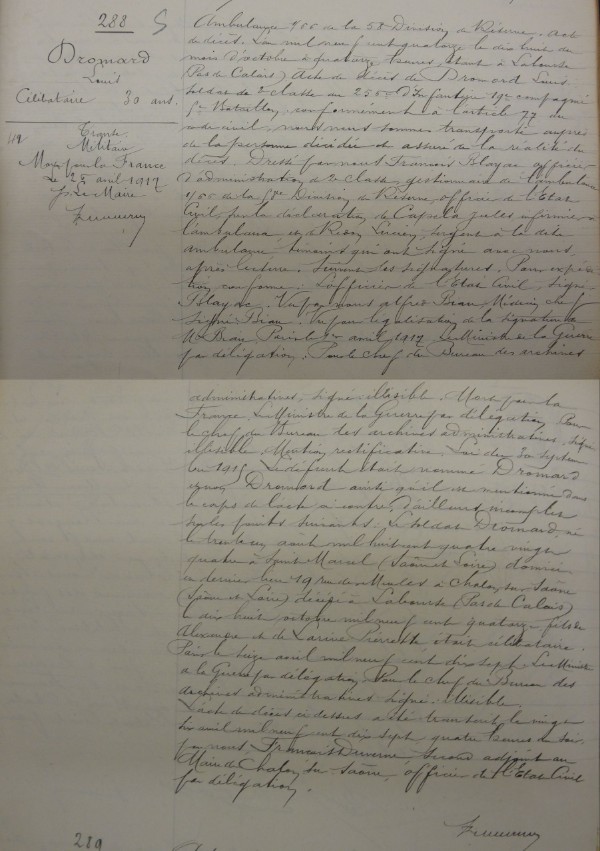 288 S
Dromard
Louis
Célibataire 30 ans.
119
Transt
Militaire
Mort pour la France
Le 25 avril 1917
Le Maire
Ambulance n° de la 58e Division de Réserve. Acte
de décès. L'an mil neuf cent quatorze le dix huit du
mois d'octobre à heures, étant à Labourse
(Pas de Calais) Acte de décès de Dromord Louis
soldat de 2e classe au 256e d'Infanterie 19e compagnie
5e Bataillon, conformément à l'article 77 du
code civil, nous nous sommes transporté auprès
de la personne décédée et assuré de la réalité du
décès. Dressé par nous François Alayse officier
d'administration de 2e classe, gestionnaire de l'ambulance
de la 58e Division de Réserve, officier de l'Etat
Civil, sur la déclaration de Jules infirmier à
l'ambulance et de Lucien, sergent à la dite
ambulance témoins qui ont signé avec nous
après lecture. Suivent les signatures. Pour expédi
tion conforme: L'officier de l'Etat Civil, signé
Vu par nous Alfred Biau Médecin chef
signé Biau. Vu pour légalisation de la signature de
Mr Biau Paris le 1er avril 1917 Le Ministre de la Guerre
par délégation. Pour le chef du Bureau des archives
administratives, signé: illisible. Mort pour la
France. Le Ministre de la Guerre par délégation Pour
le chef du Bureau des archives administratives, signé
illisible. Mention rectificative. Loi du 30 septem
bre 1915. Le défunt était nommé Dromard
et non Dromord ainsi qu'il est mentionné dans
le corps de l'acte ci contre, d'ailleurs incomplet
sur les points suivants. Le soldat Dromard, né
le trente août mil huit cent quatre vingt
quatre à Saint Marcel (Saône et Loire) domicilié
en dernier lieu 19 rue des Meules à Chalon sur Saône
(Saône et Loire) décédé à Labourse (Pas de Calais)
le dix huit octobre mil neuf cent quatorze fils de
Alexandre et de Larive Pierrette était célibataire.
Paris le seize avril mil neuf cent dix sept. Le Ministre
de la Guerre par délégation, Pour le chef du Bureau des
archives administratives signé: illisible.
L'acte de décès ci dessus a été transcrit le vingt
cinq avril mil neuf cent dix sept quatre heures du soir
par nous, François Duverne, second adjoint au
Maire de Chalon sur Saône, officier de l'Etat Civil
par délégation.
289